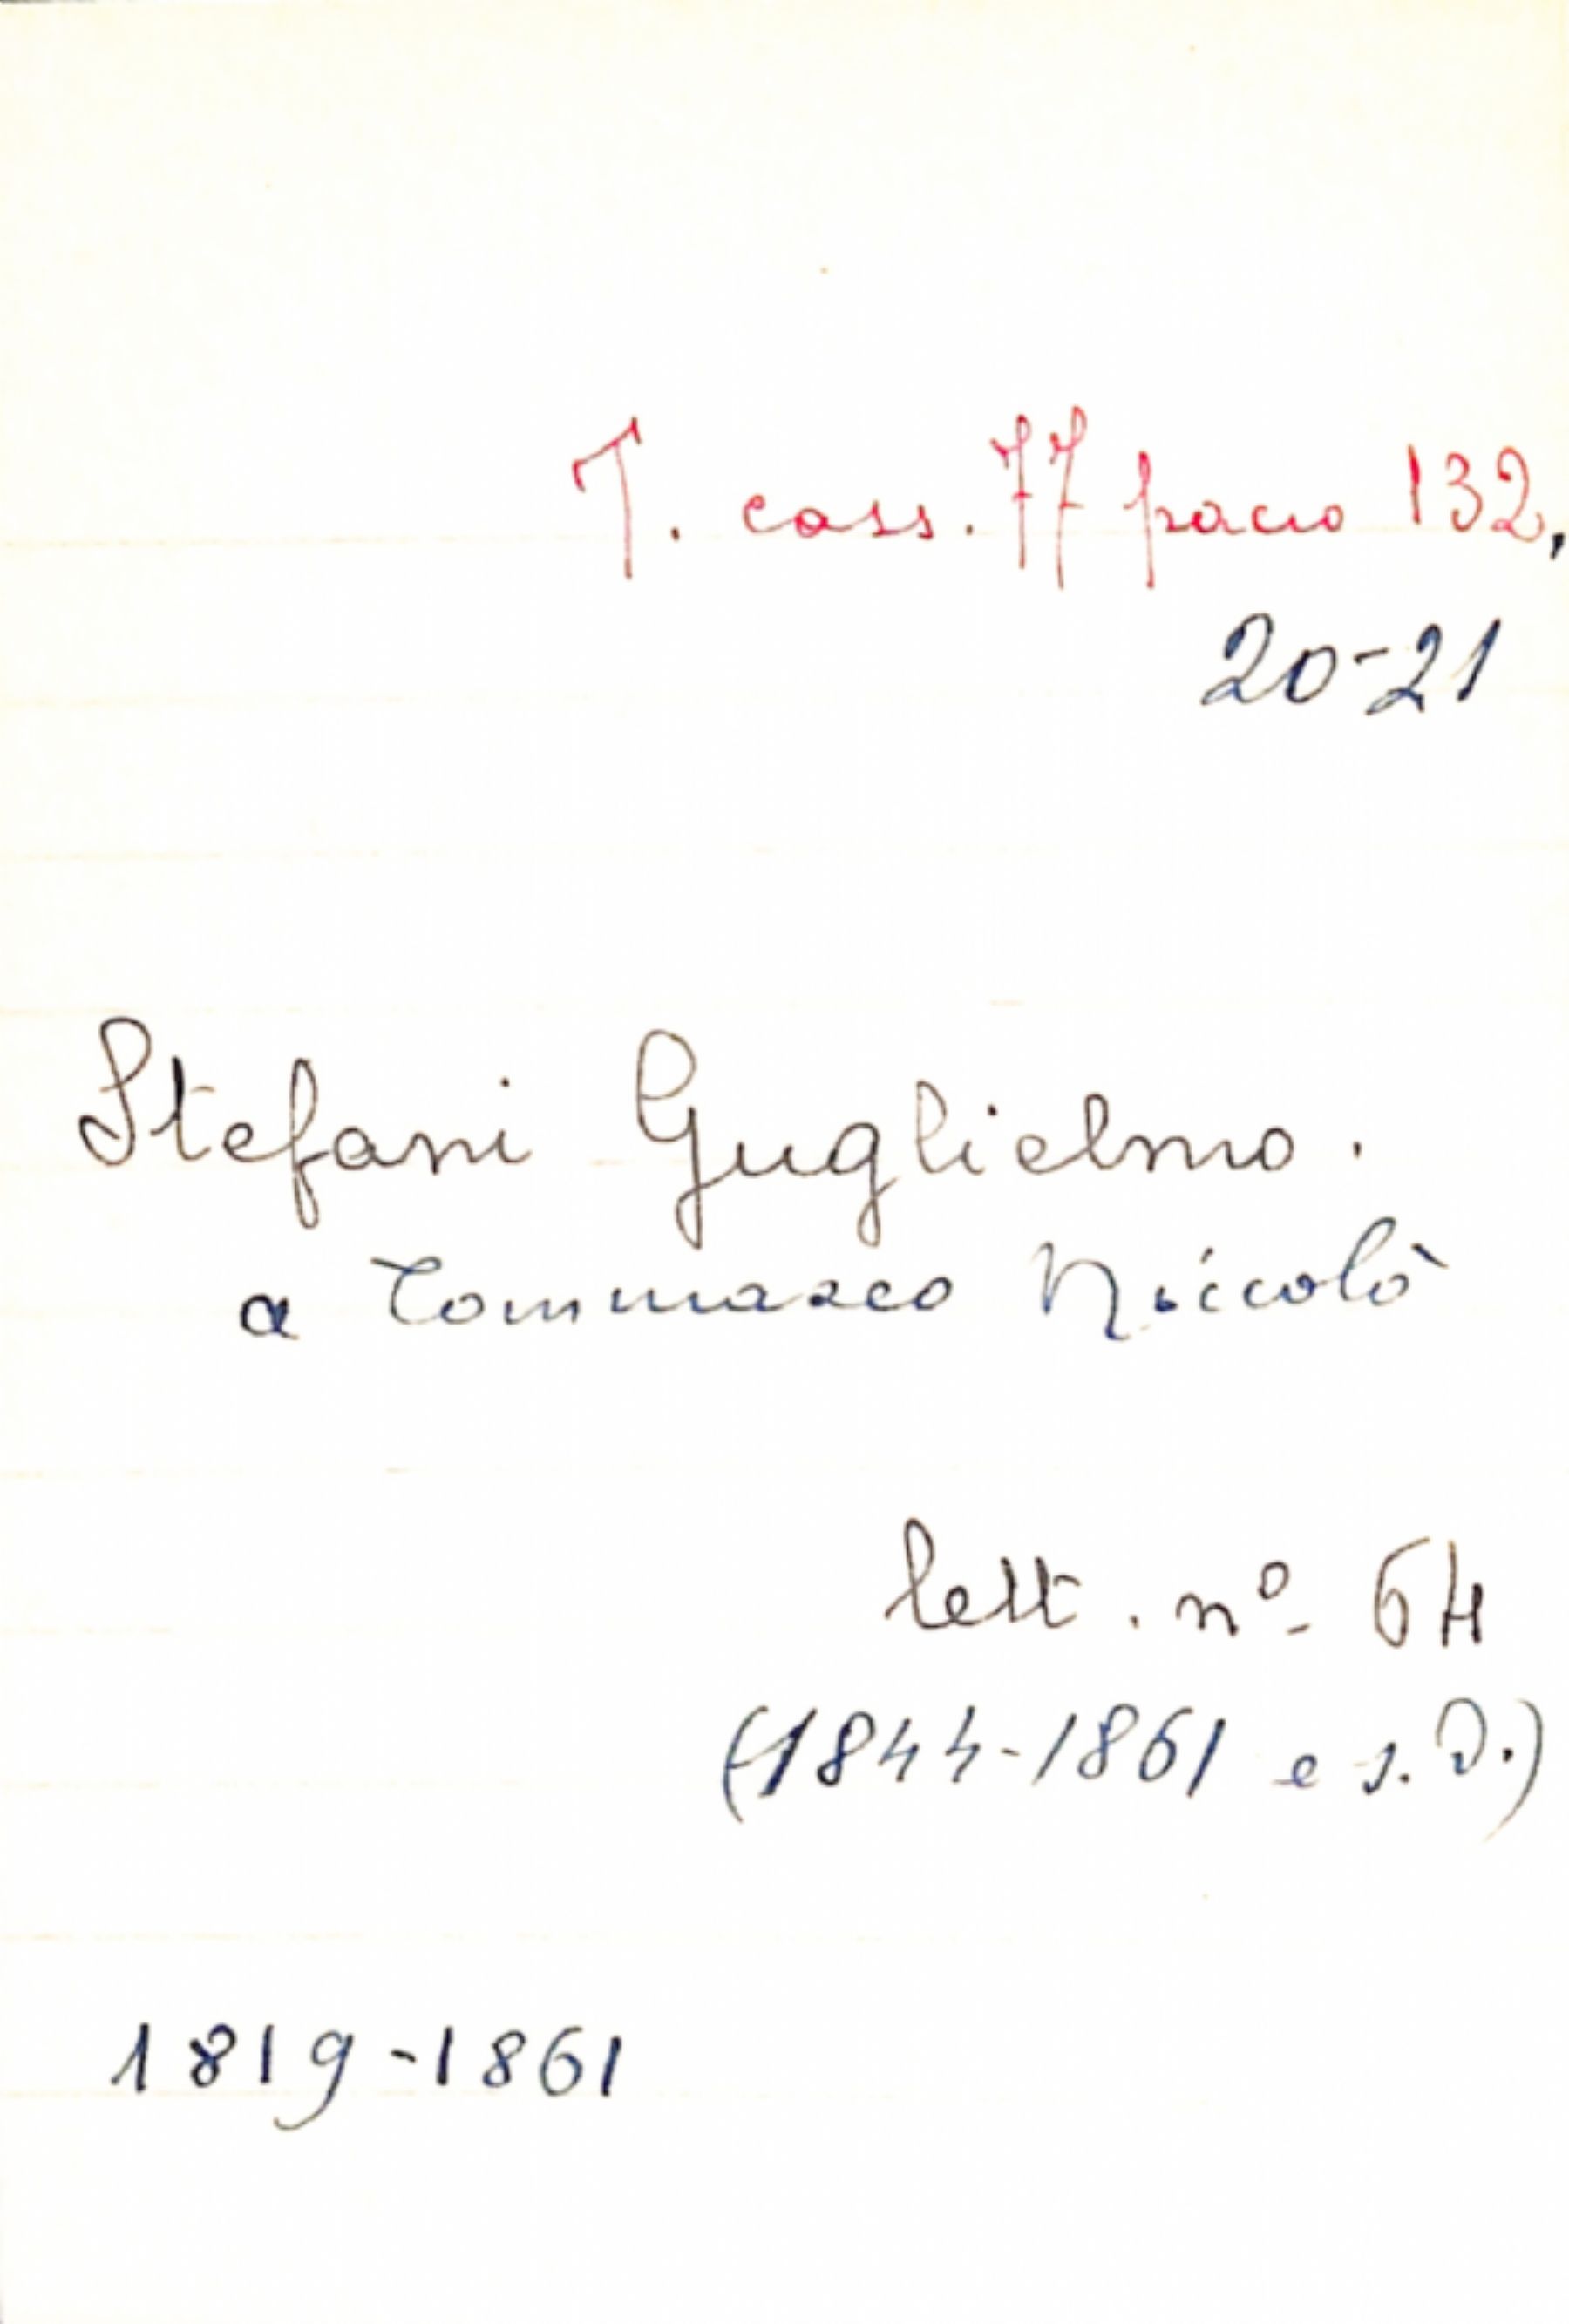 T. cass. 77 pacco 132,
20-21
Stefani Guglielmo.
a Tommaseo Niccolò
lett. nº 64
(1844-1861 e s.D.)
1819-1861